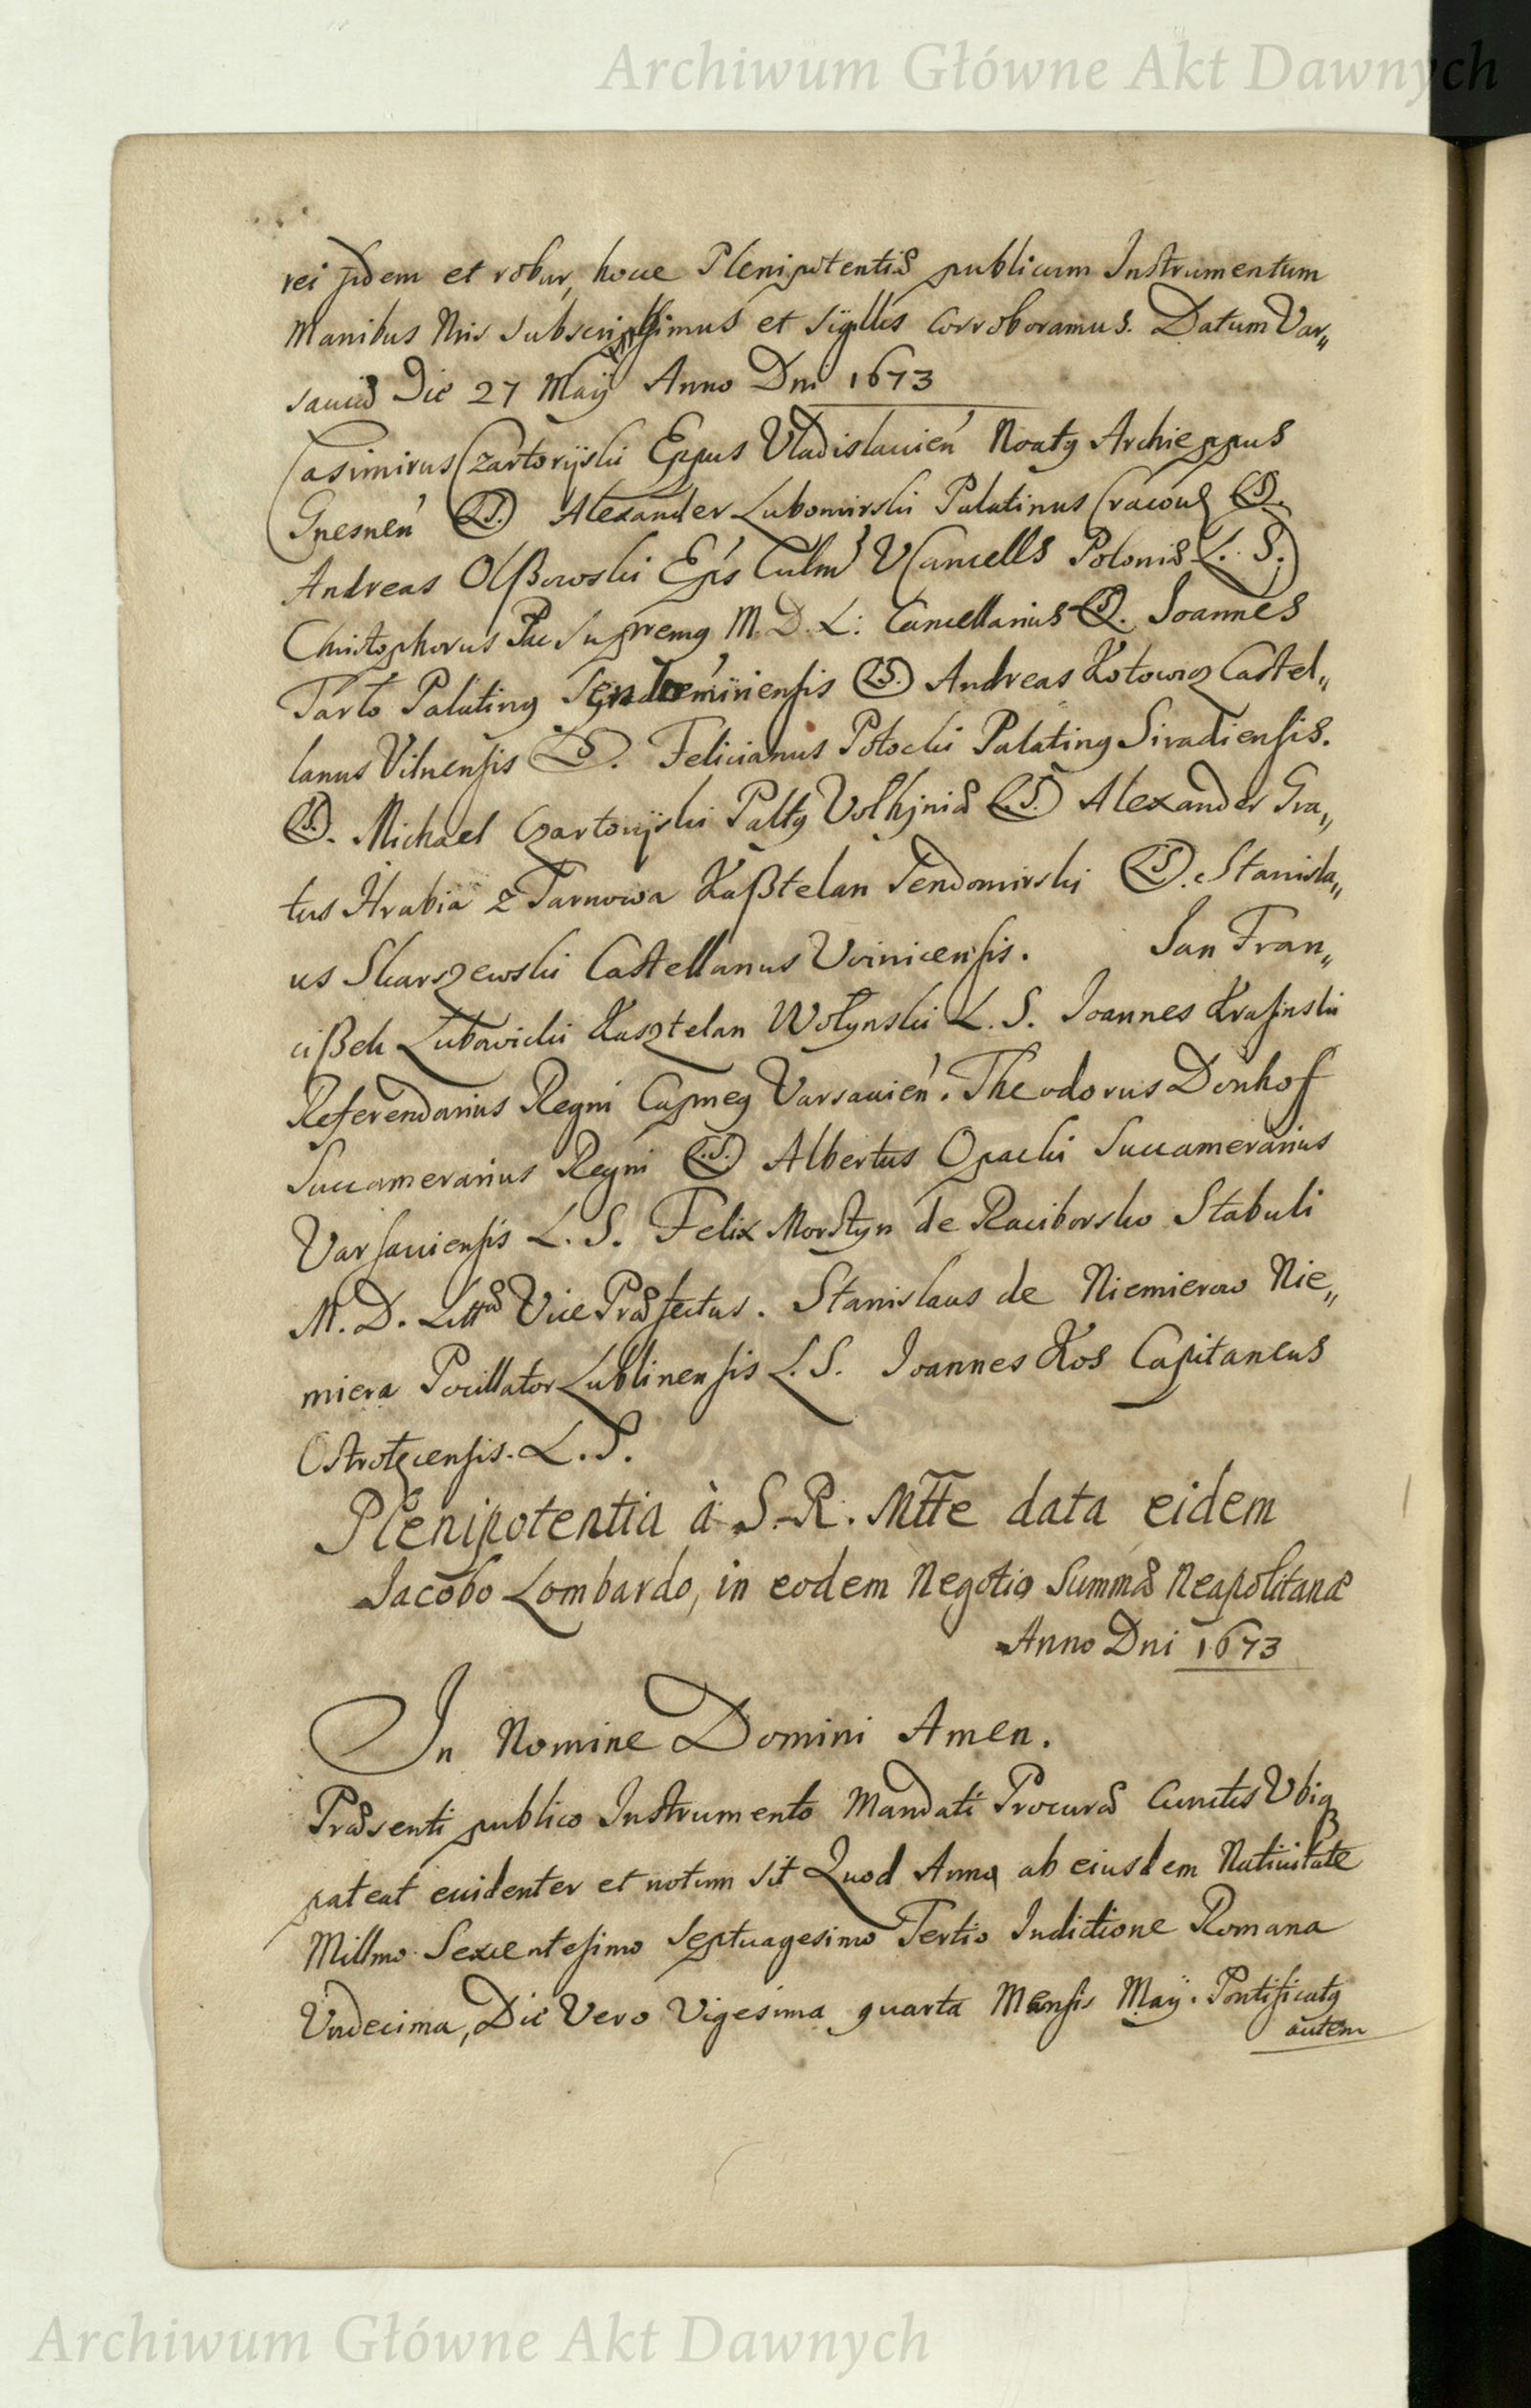 Archiwum Główne Akt Dawnych
rei fidem et robur, hocce Plenipotentiæ publicum Instrumentum
Manibus Nris subscripsimus et sigillis corroboramus. Datum Var„
saviæ Die 27 Maÿ Anno Dni 1673
Casimirus Czartorÿski Eppus Vladislavień Noatg Archieppus
Gnesneń L.S. Alexander Lubomirski Palatinus Cracov L.S.
Andreas Olßowski Epis Culm VCancells Poloniæ L. S.
Christophorus Pac Supremg M. D. L. Cancellarius L.S. Joannes
Tarło Palating Sendomiriensis L.S. Andreas Kotowicz Castel„
lanus Vilnensis L.S. Felicianus Potocki Palating Siradiensis.
L.S. Michael Czartorÿski Paltg Volhÿniæ L.S. Alexander Gra„
tus Hrabia z Tarnowa Kaßtelan Sendomirski L.S. Stanisla„
us Skarszewski Castellanus Voinicensis. Jan Fran„
cißek Lubowicki Kasztelan Wołynski L. S. Joannes Krasinski
Referendarius Regni Capneg Varsavień. Theodorus Denhof
Succamerarius Regni L.S. Albertus Opacki Succamerarius
Varsaviensis L. S. Felix Morstyn de Raciborsko Stabuli
M. D. Littæ Vice Præfectus. Stanislaus de Niemierow Nie„
miera Pocillator Lublinensis L. S. Joannes Kos Capitaneus
L. S.
Plenipotentia à S. R. Mtte data eidem
Jacobo Lombardo, in eodem Negotio Summæ Neapolitanæ
Anno Dni 1673
In Nomine Domini Amen.
Præsenti publico Instrumento Mandati Procuræ Cunctis Vbiq
pateat evidenter et notum sit Quod Anno ab eiusdem Nativitate
Millmo Sexcentesimo Septuagesimo Tertio Indictione Romana
Undecima, Die Vero Vigesima quarta Mensis Maÿ. Pontificatg
autem
Archiwum Główne Akt Dawnych